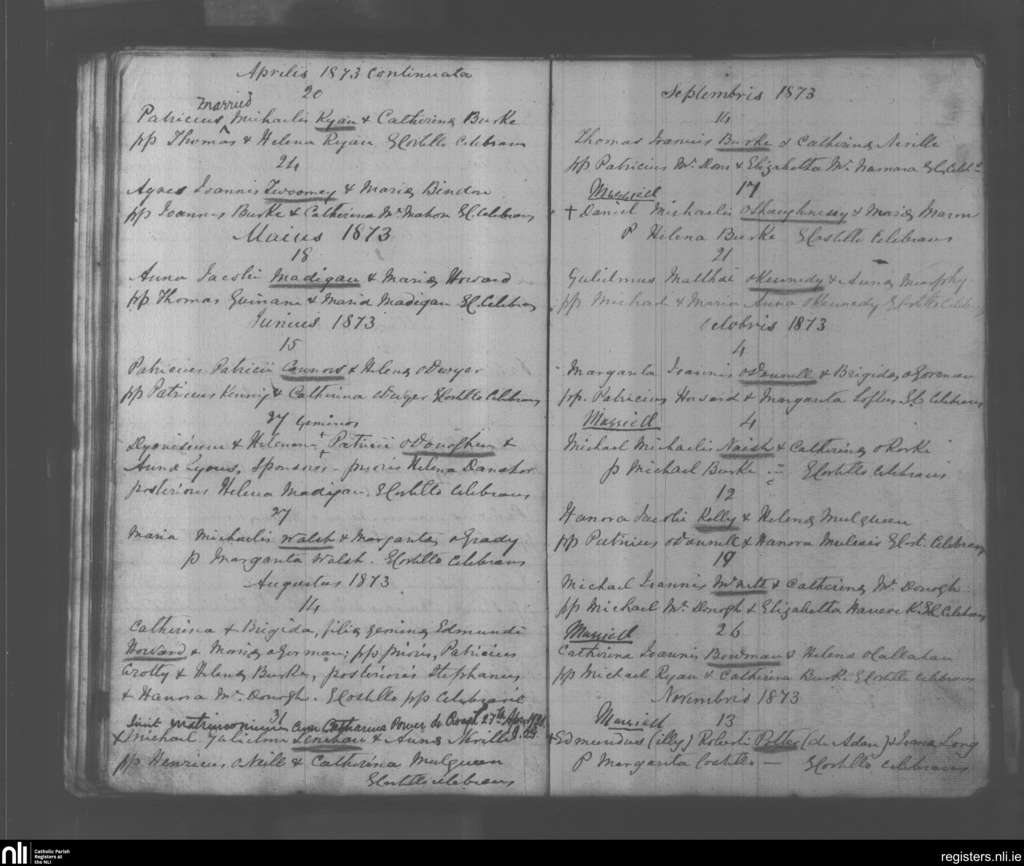 Aprilis 1873 continuata
20
married
Patricius Michaelis Ryan & Catherina Burke
pp Thomas & Helena Ryan E Costello Celebrans
24
Agnes Joannis Twoomey & Maria Bindon
pp Joannes Burke & Catherina McMahon EC Celebrans
Maius 1873
18
Anna Jacobi Madigan & Maria Howard
pp Thomas Guinane & Maria Madigan EC. Celebrans
Junius 1873
15
Patricius Patricii Connors & Helena oDwyer
pp Patricius & Catherina E Costello Celebrans
27 Geminos
Dyonisium & Helenam Patricii oDonoghue &
Anna Lyons, Sponsores - prioris Helena
posterioris Helena Madigan. E Costello Celebrans
27
Maria Michaelis Walsh & Margarita oGrady
p Margarita Walsh. E Costello Celebrans
Augustus 1873
14
Catherina & Brigida, filia gemina Edmundi
Howard & Maria oGorman; pp prioris, Patricius
Crotty & Helena Burke, posterioris Stephanus
& Hanora McDonogh. E Costello pp Celebravit
31
matrimonium cum Catharina Power de 27th
+ Michael Gulielmi Lenihan & Anna Neville
pp Henricus oNeill & Catherina Mulqueen
E Costello Celebrans
Septembris 1873
14
Thomas Joannis Burke & Catherina Neville
pp Patricius Mc & Elizabetta McNamara
Married 17
+ Daniel Michaelis oShaughnessy & Maria
P Helena Burke E Costello Celebrans
21
Gulielmus Matthai oKennedy & Anna Murphy
pp Michael & Maria Anna oKennedy E Costello
Octobris 1873
4
Margarita Joannis oDonnell & Brigida oGorman
pp. Patricius Howard & Margarita Loftus Celebrans
Married 4
Michael Michaelis Naish & Catherina oRorke
p Michael Burke E Costello Celebrans
12
Hanora Jacobi Kelly & Helena Mulqueen
pp Patricius oDonnell & Hanora E Cost. Celebrans
19
Michael Joannis & Catherina McDonogh
pp Michael McDonogh & Elizabetta EC Celebrans
Married 26
Catherina Joannis Bowman & Helena oCallahan
pp Michael Ryan & Catherina Burke E Costello celebrans
Novembris 1873
Married 13
+ Edmundus (illeg) Roberti (de Adare) & Joanna Long
P Margarita Costello — E Costello celebrans
nli
Catholic Parish
Registers at
the NLI
registers.nli.ie